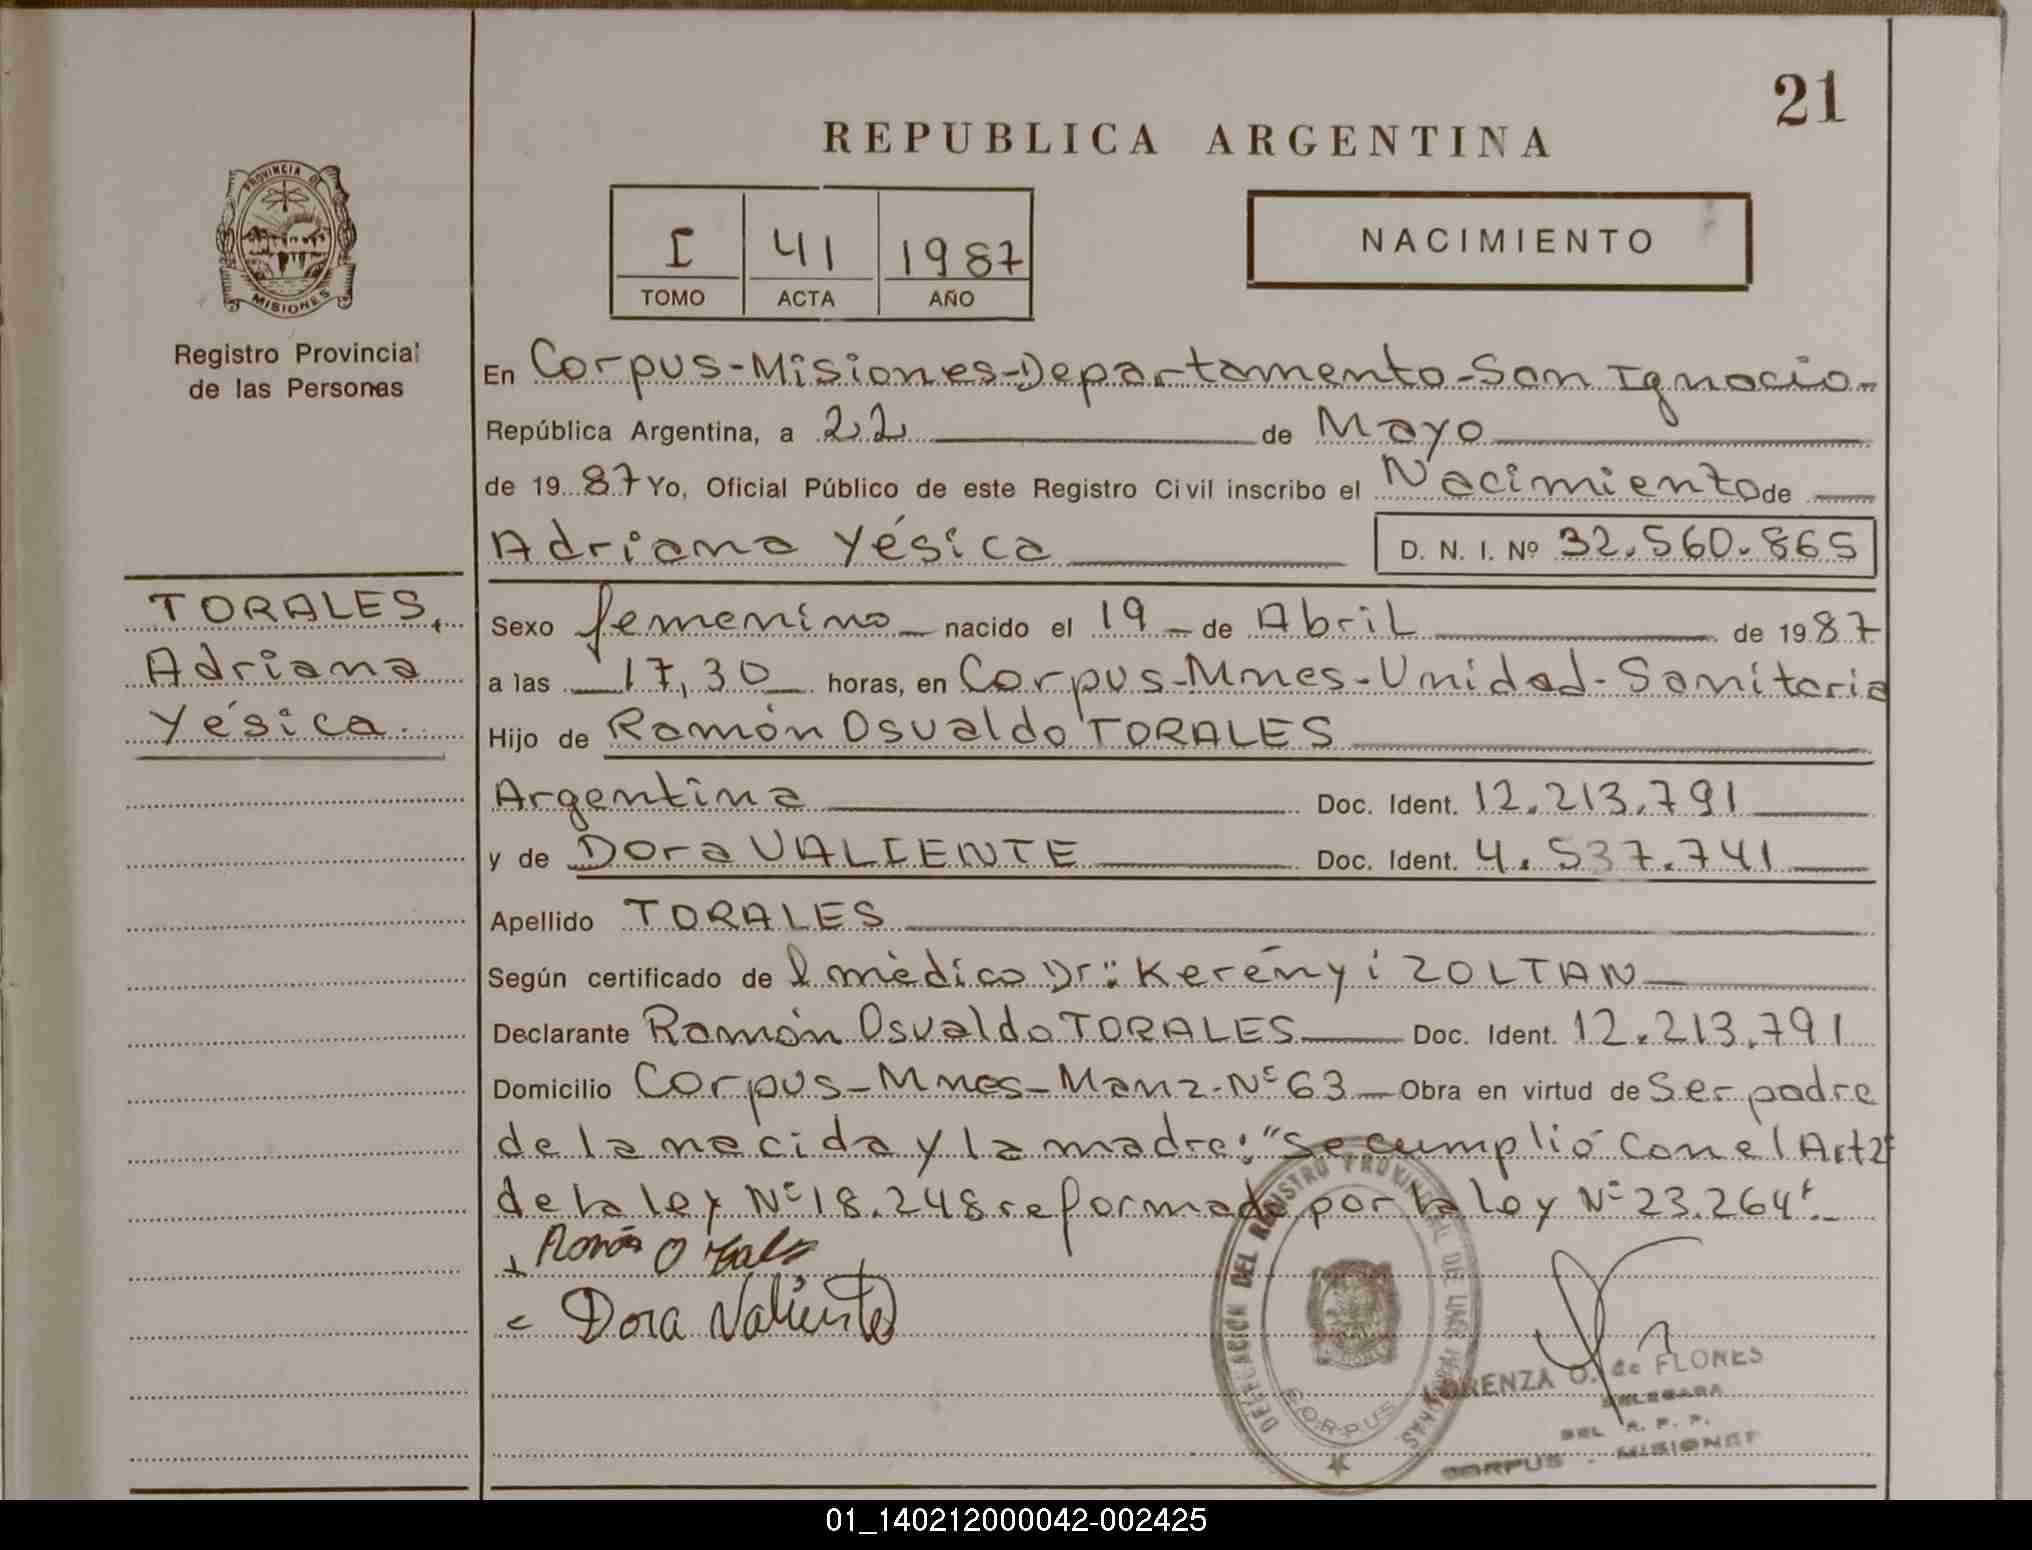 21
REPUBLICA ARGENTINA
PROVINCIA DE
MISIONES
Registro Provincial
de las Personas
I 41 1987
TOMO ACTA AÑO
NACIMIENTO
En Corpus-Misiones-Departamento-San Ignacio-
República Argentina, a 22 de Mayo
de 1987 Yo, Oficial Público de este Registro Civil inscribo el Nacimiento de
Adriana Yésica D. N. I. Nº 32.560.865
TORALES,
Adriana
Yésica
Sexo femenino nacido el 19 de Abril de 1987
a las 17,30 horas, en Corpus-Mnes-Unidad-Sanitaria
Hijo de Ramón Osvaldo TORALES
Argentina Doc. Ident. 12.213.791
y de Dora VALIENTE Doc. Ident. 4.537.741
Apellido TORALES
Según certificado del mèdico Dr: Kerényi ZOLTAN
Declarante Ramón Osvaldo TORALES Doc. Ident. 12.213.791
Domicilio Corpus-Mnes-Manz-Nº 63 Obra en virtud de Ser padre
de la nacida y la madre; "Se cumplió con el Art 2º
de la ley Nº 18.248 reformada por la ley Nº 23.264".
Dora Valiente
DELEGACION DEL REGISTRO PROVINCIAL DE LAS PERSONAS
CORPUS
LORENZA O. de FLORES
DELEGADA
DEL R. P. P.
CORPUS - MISIONES
01_140212000042-002425